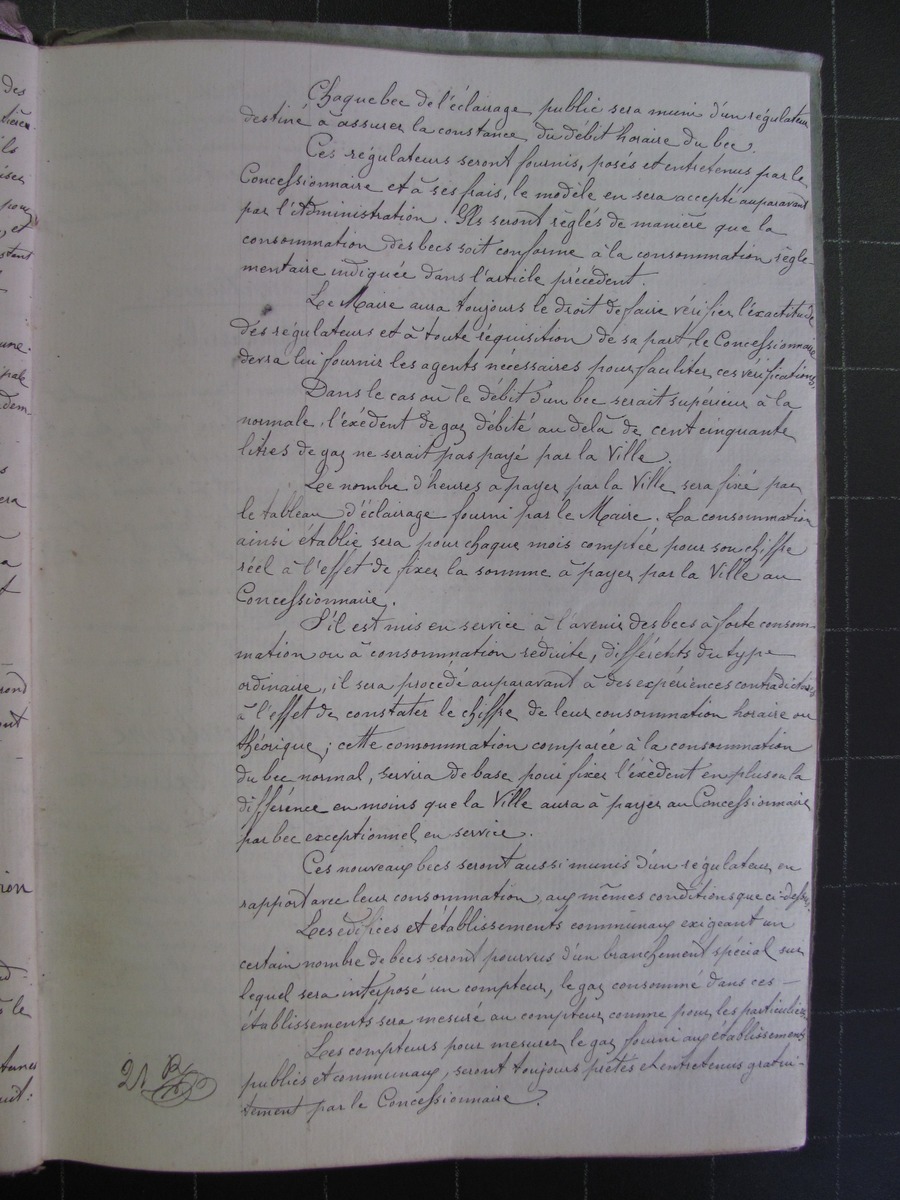 Chaque bec de l'éclairage public sera muni d'un régulateur
destiné à assurer la constance du débit horaire du bec.
Ces régulateurs seront fournis, posés et entretenus par le
Concessionnaire et à ses frais, le modèle en sera accepté auparavant
par l'Administration. Ils seront réglés de manière que la
consommation des becs soit conforme à la consommation règle
mentaire indiquée dans l'article précédent.
Le Maire aura toujours le droit de faire vérifier l'éxactitude
des régulateurs et à toute réquisition de sa part, le Concessionnaire
devra lui fournir les agents nécessaires pour faciliter ces vérifications.
Dans le cas où le débit d'un bec serait supérieur à la
normale, l'éxédent de gaz débité au delà de cent cinquante
litres de gaz ne serait pas payé par la Ville.
Le nombre d'heures à payer par la Ville sera fixé par
le tableau d'éclairage fourni par le Maire. La consommation
ainsi établie sera pour chaque mois comptée pour son chiffre
réel à l'effet de fixer la somme à payer par la Ville au
Concessionnaire.
S'il est mis en service à l'avenir des becs à forte consom-
mation ou à consommation réduite, différents du type
ordinaire, il sera procédé auparavant à des expériences contradictoires
à l'effet de constater le chiffre de leur consommation horaire ou
théorique; cette consommation comparée à la consommation
du bec normal, servira de base pour fixer l'éxèdent en plus ou la
différence en moins que la Ville aura à payer au Concessionnaire
par bec exceptionnel en service.
Ces nouveaux becs seront aussi munis d'un régulateur en
rapport avec leur consommation, aux mêmes conditions que ci-dessus.
Les édifices et établissements communaux exigeant un
certain nombre de becs seront pourvus d'un branchement spécial sur
lequel sera interposé un compteur, le gaz consommé dans ces -
établissements sera mesuré au compteur comme pour les particuliers
Les compteurs pour mesurer le gaz fourni aux établissements
publics et communaux, seront toujours prêtés et entretenus gratui-
tement par le Concessionnaire.
21